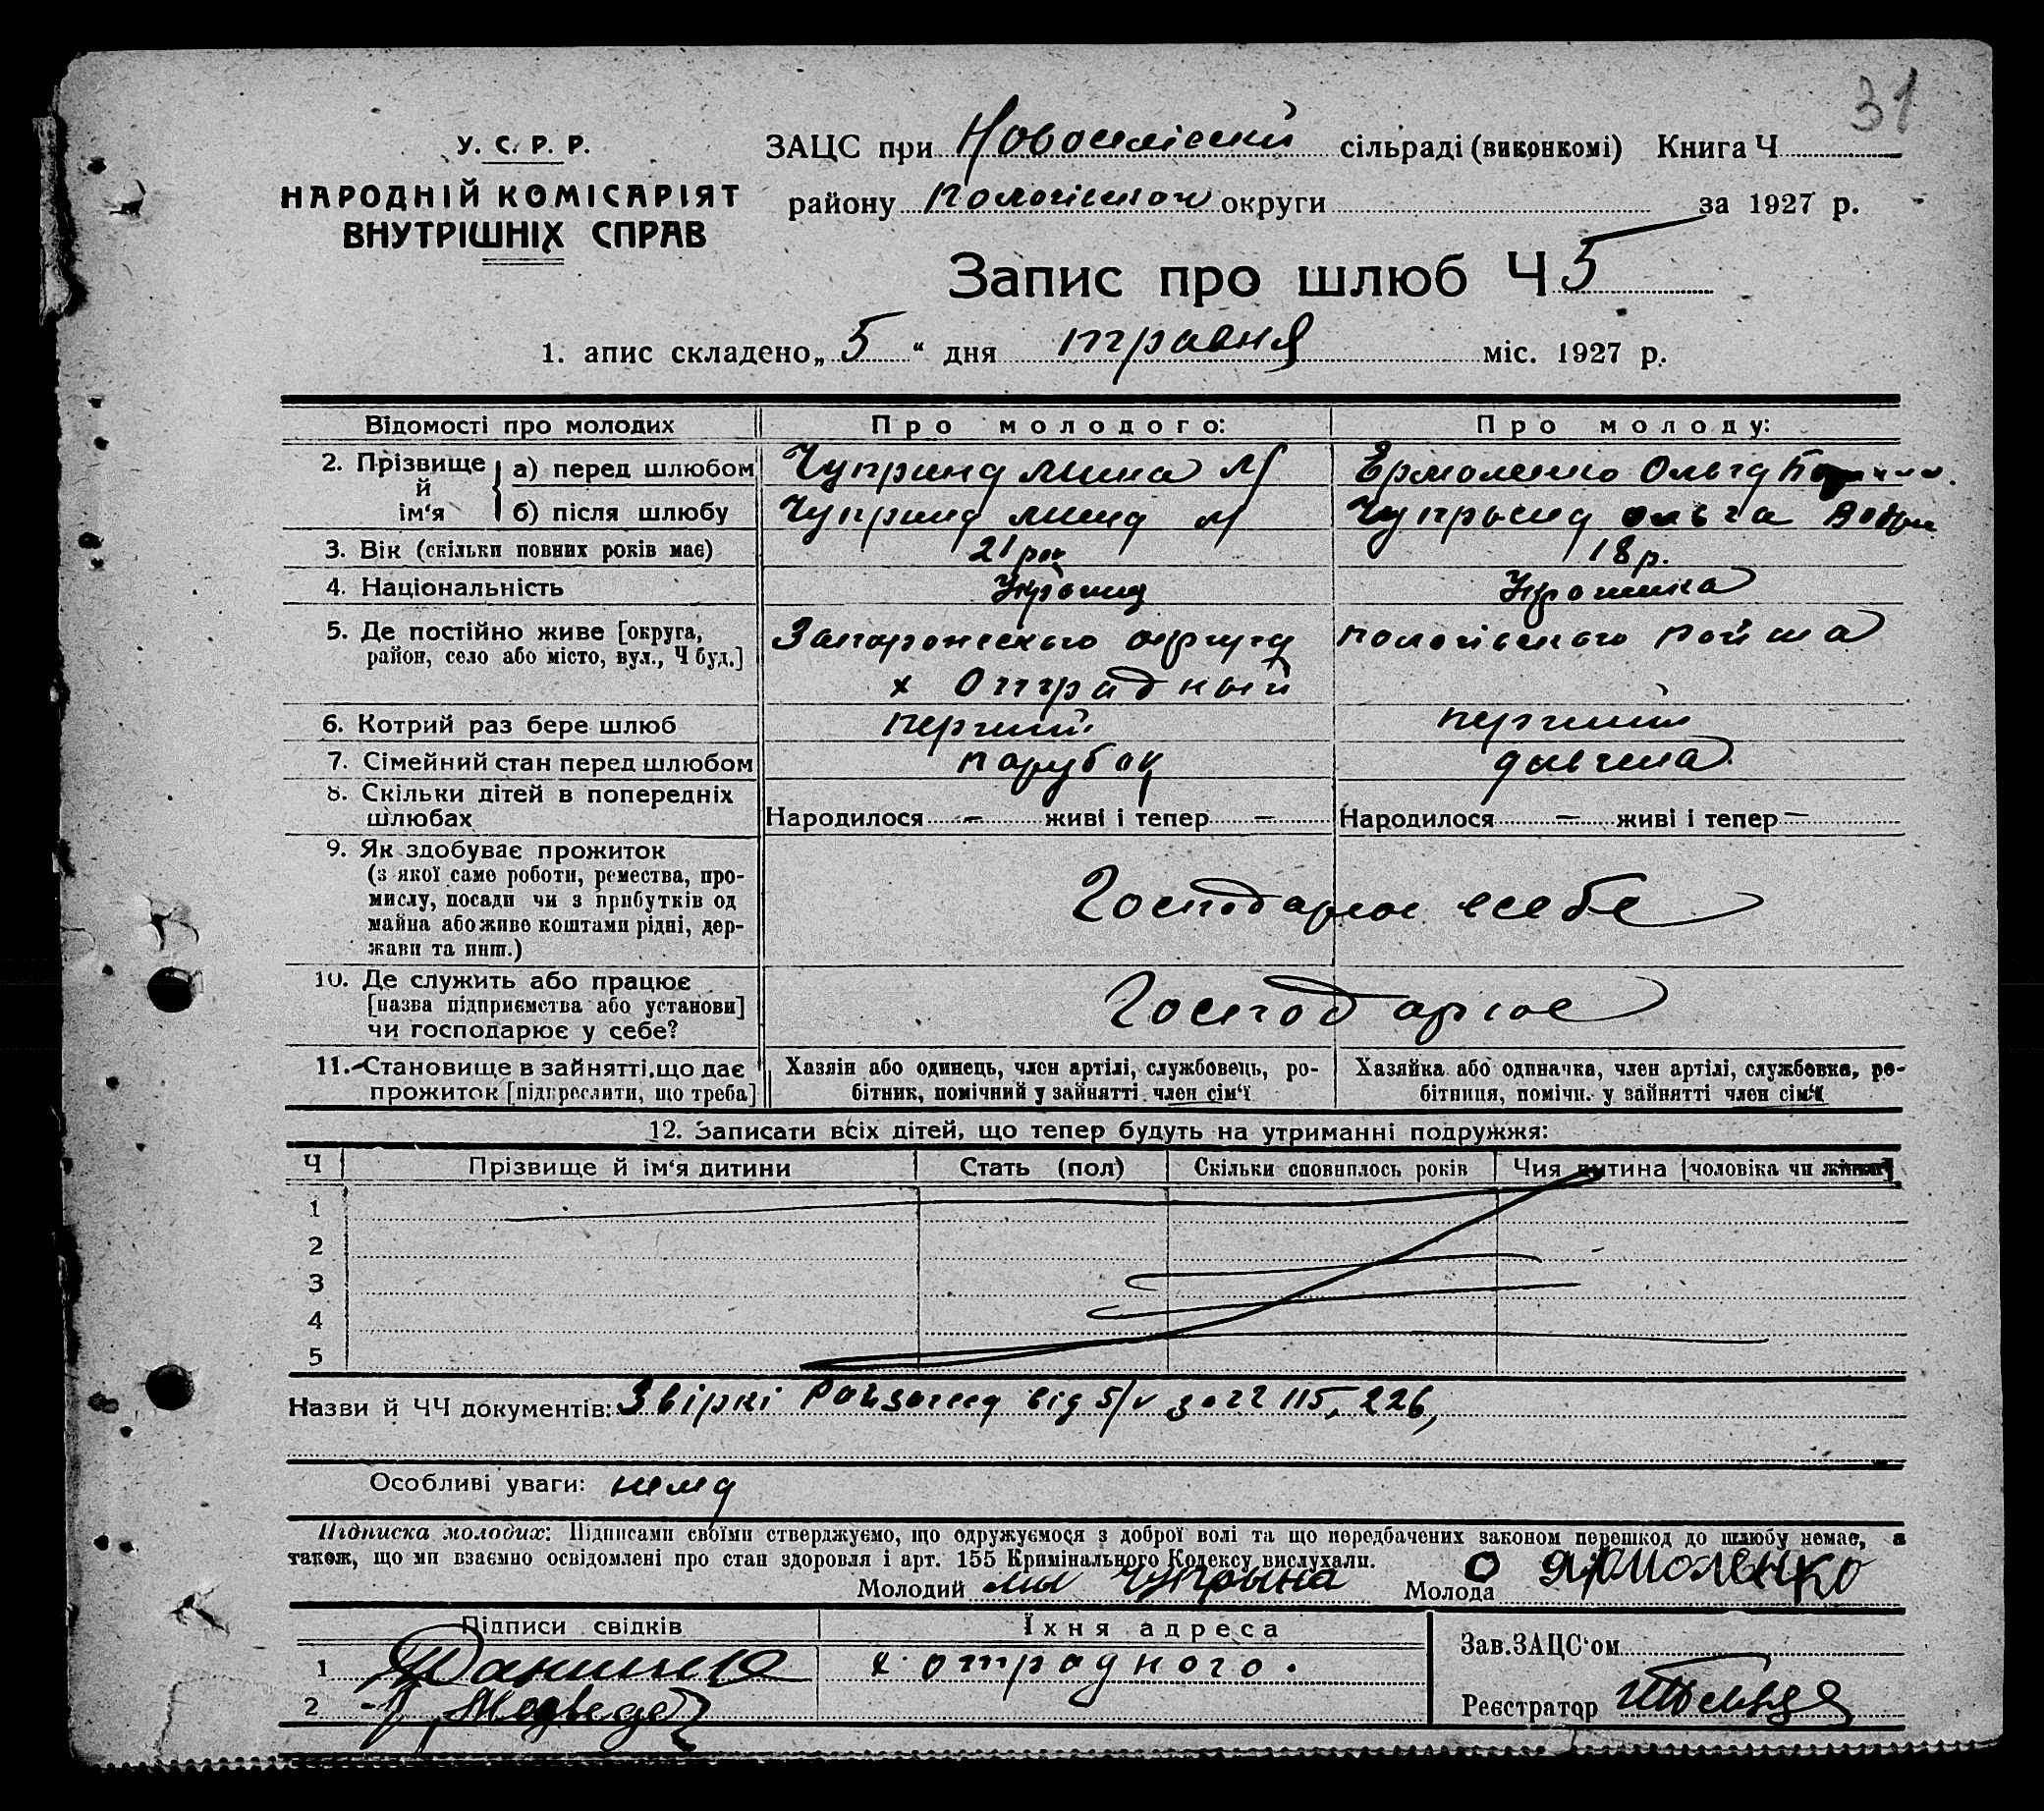 31
У. С. Р. Р.
НАРОДНІЙ КОМІСАРІЯТ
ВНУТРІШНІХ СПРАВ
ЗАЦС при сільраді (виконкомі) Книга Ч
району округи за 1927 р.
Запис про шлюб Ч 5
1. апис складено „ 5 “ дня травня міс. 1927 р.
Відомості про молодих Про молодого: Про молоду:
2. Прізвище й ім‘я
а) перед шлюбом Чуприна М Ермоленко Ольга
б) після шлюбу Чуприна М ольга
3. Вік (скільки повних років має) 21 рок 18 р.
4. Національність
5. Де постійно живе [округа, район, село або місто, вул., Ч буд.]
х Отградный
6. Котрий раз бере шлюб перший перший
7. Сімейний стан перед шлюбом парубок дивчина
8. Скільки дітей в попередніх шлюбах Народилося — живі і тепер — Народилося — живі і тепер —
9. Як здобуває прожиток
(з якої саме роботи, ремества, про-
мислу, посади чи з прибутків од
майна або живе коштами рідні, дер-
жави та инш.)
Господарює в себе
10. Де служить або працює
[назва підприємства або установи]
чи господарює у себе?
Господарює
11. Становище в зайнятті, що дає
прожиток [підкреслити, що треба]
Хазяін або одинець, член артілі, службовець, ро-
бітник, помічний у зайнятті член сім‘ї
Хазяйка або одиначка, член артілі, службовка, ро-
бітниця, помічн. у зайнятті член сім‘ї
12. Записати всіх дітей, що тепер будуть на утриманні подружжя:
Ч Прізвище й ім‘я дитини Стать (пол) Скільки сповнилось років Чия дитина [чоловіка чи жінки]
1
2
3
4
5
Назви й ЧЧ документів: Звіркі від 5/V 115, 226,
Особливі уваги: нема
Підписка молодих: Підписами своїми стверджуємо, що одружуємося з доброї волі та що передбачених законом перешкод до шлюбу немає, а
також, що ми взаємно освідомлені про стан здоровля і арт. 155 Кримінального Кодексу вислухали.
Молодий Чупрына Молода О Ярмоленко
Підписи свідків Їхня адреса
1 х. отрадного.
2 Медведе
Зав. ЗАЦС‘ом
Реєстратор